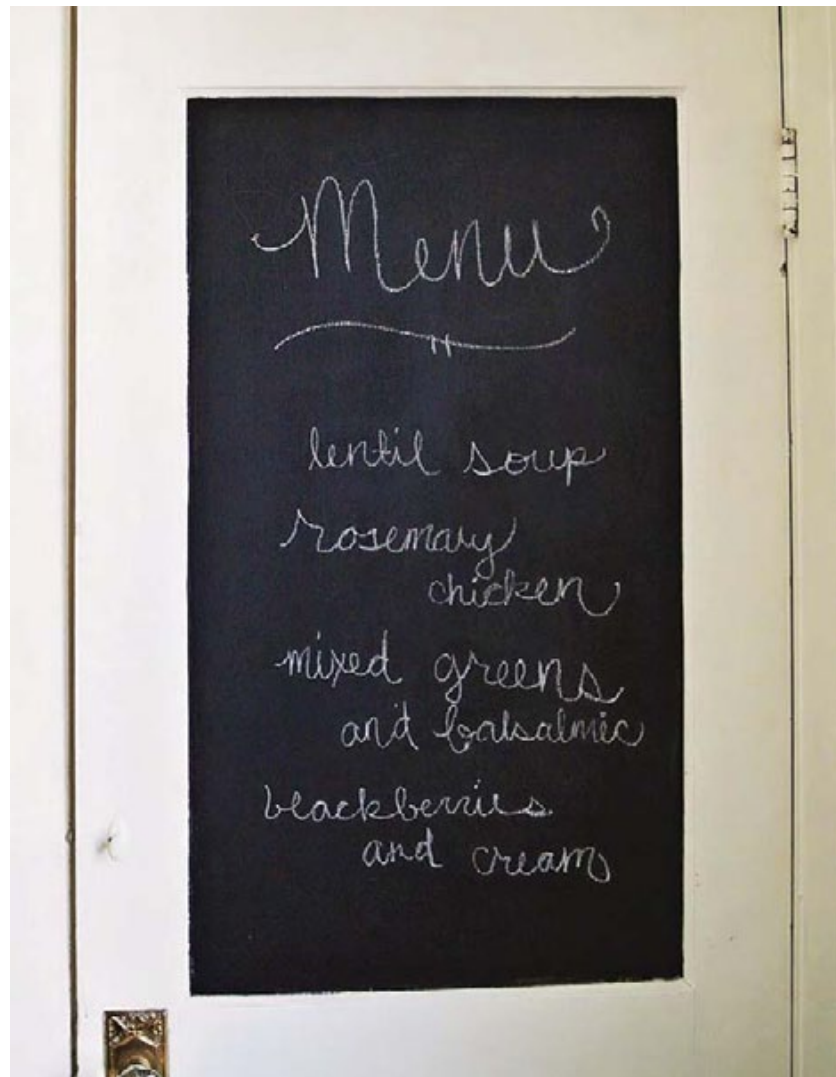 Menu
lentil soup
rosemary
chicken
mixed greens
and balsalmic
blackberries
and cream